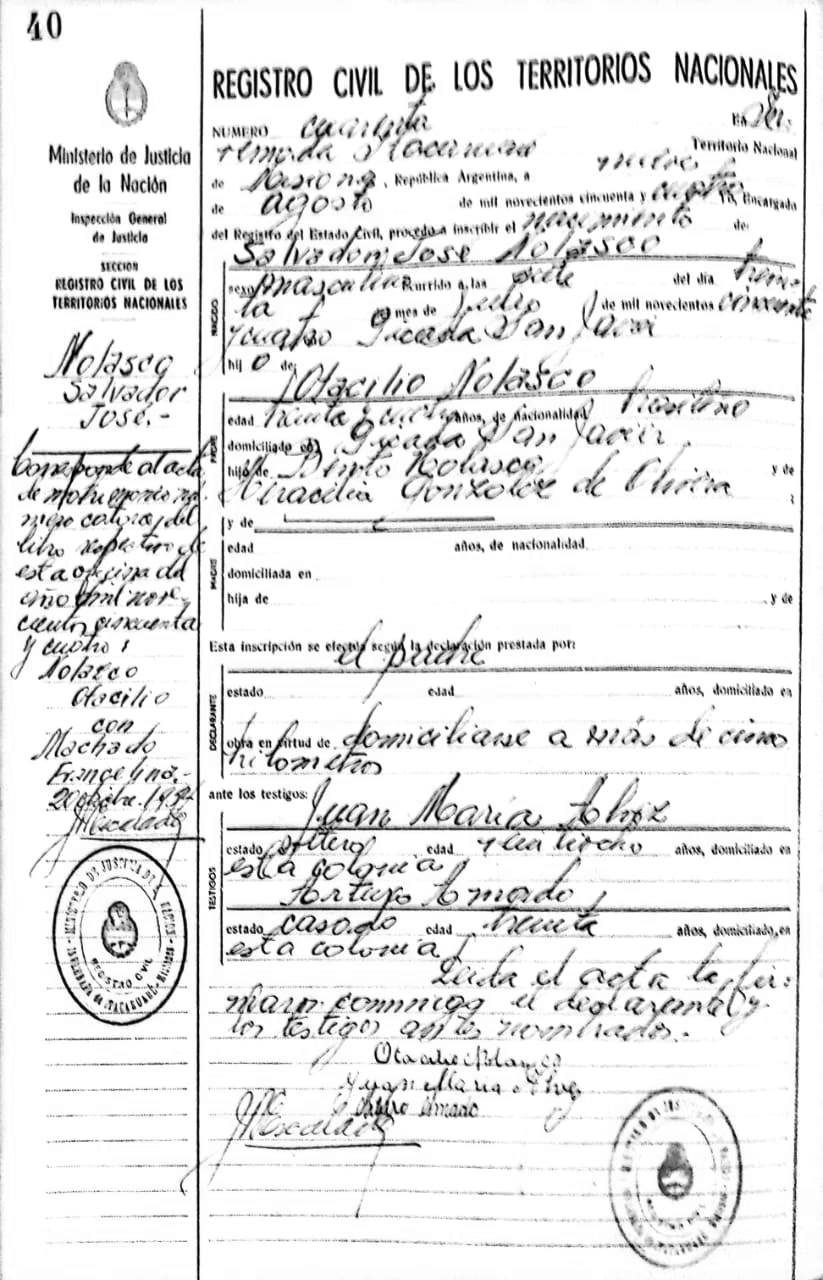 40
Ministerio de Justicia
de la Nación
Inspección General
de Justicia
SECCION
REGISTRO CIVIL DE LOS
TERRITORIOS NACIONALES
Nolasco
Salvador
José.-
Corresponde al acta
de matrimonio nú-
mero catorce del
libro respectivo de
esta oficina del
año mil nove-
cientos cincuenta
y cuatro:
Nolasco
Otacilio
con
Machado
20 dicbre. 1954
REGISTRO CIVIL DE LOS TERRITORIOS NACIONALES
NUMERO cuarenta EN
Territorio Nacional
de Misiones, República Argentina, a nueve
de agosto de mil novecientos cincuenta y cuatro Yo, Encargado
del Registro del Estado Civil, procedo a inscribir el nacimiento de:
Salvador José Nolasco
NACIDO
sexo masculino ocurrido a las siete del día trein-
ta mes de julio de mil novecientos cincuenta
y cuatro Picada San Javier
hijo de:
Otacilio Nolasco
PADRE
edad treinta y cuatro años, de nacionalidad brasilero
domiciliado en Picada San Javier
hijo de Benito Nolasco y de
Gonzalez de Olivera ;
y de
MADRE
edad años, de nacionalidad
domiciliada en
hija de y de
Esta inscripción se efectúa según la declaración prestada por:
el padre
DECLARANTE
estado edad años, domiciliado en
obra en virtud de domiciliarse a más de cinco
kilometros
ante los testigos:
Juan María
TESTIGOS
estado soltero edad veintiocho años, domiciliado en
esta colonia
Arturo Amado
estado casado edad treinta años, domiciliado en
esta colonia
Leida el acta la fir-
maron conmigo el declarante y
los testigos antes nombrados.-
Juan Maria
Arturo Amado
MINISTERIO DE JUSTICIA DE LA NACION
REGISTRO CIVIL